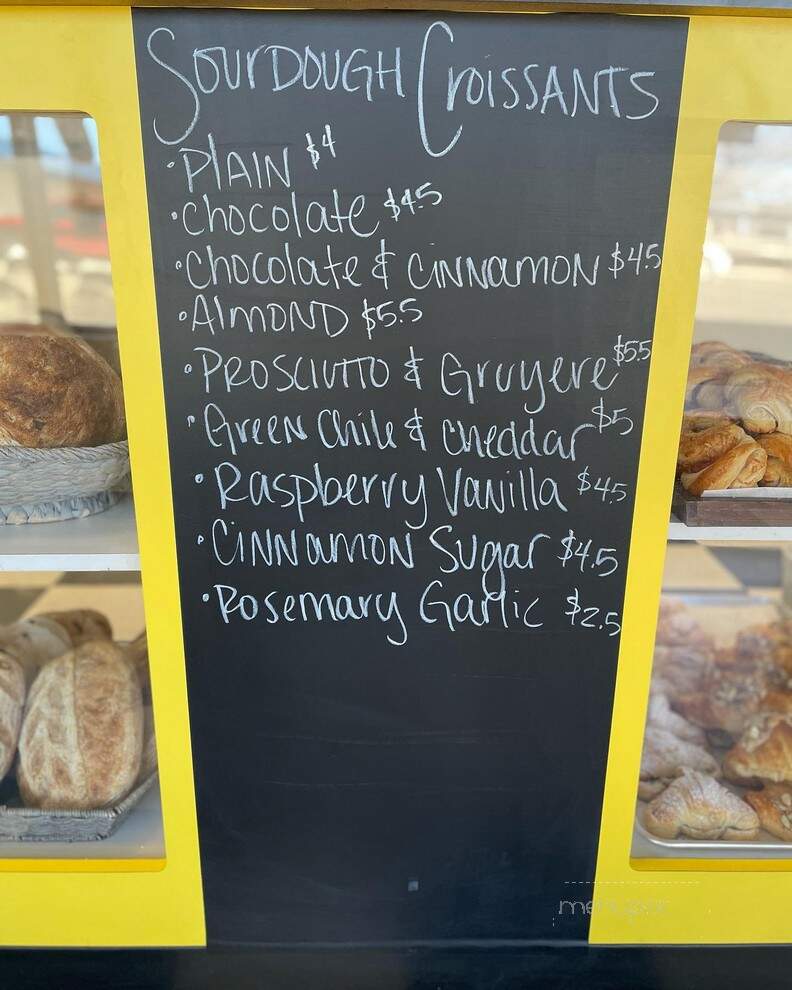 Sourdough Croissants
· Plain $4
· Chocolate $4.5
· Chocolate & Cinnamon $4.5
· Almond $5.5
· Prosciutto & Gruyere $5.5
· Green Chile & Cheddar $5
· Raspberry Vanilla $4.5
· Cinnamon Sugar $4.5
· Rosemary Garlic $2.5